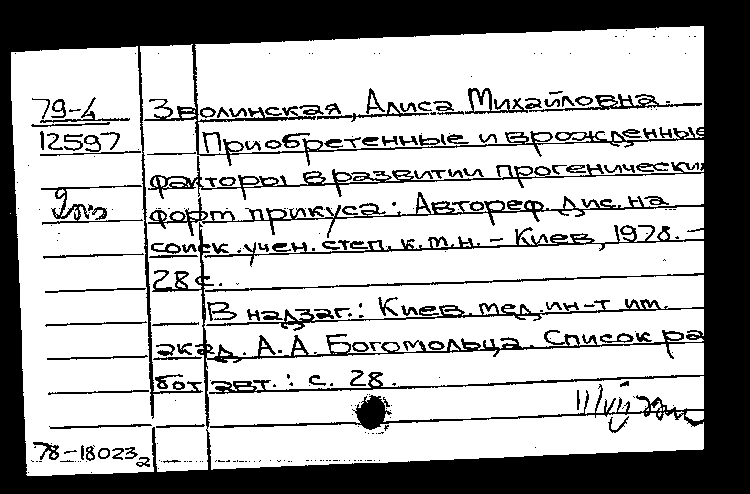 79-4 Зволинская, Алиса Михайловна.
12597 Приобретенные и врожденные
факторы в развитии прогенически
форм прикуса: Автореф. дис. на
соиск. учен. степ. к.м.н. – Киев, 1978. –
28 с.
В надзаг.: Киев. мед. ин-т им.
акад. А. А. Богомольца. Список ра
бот авт.: с. 28.
78-18023